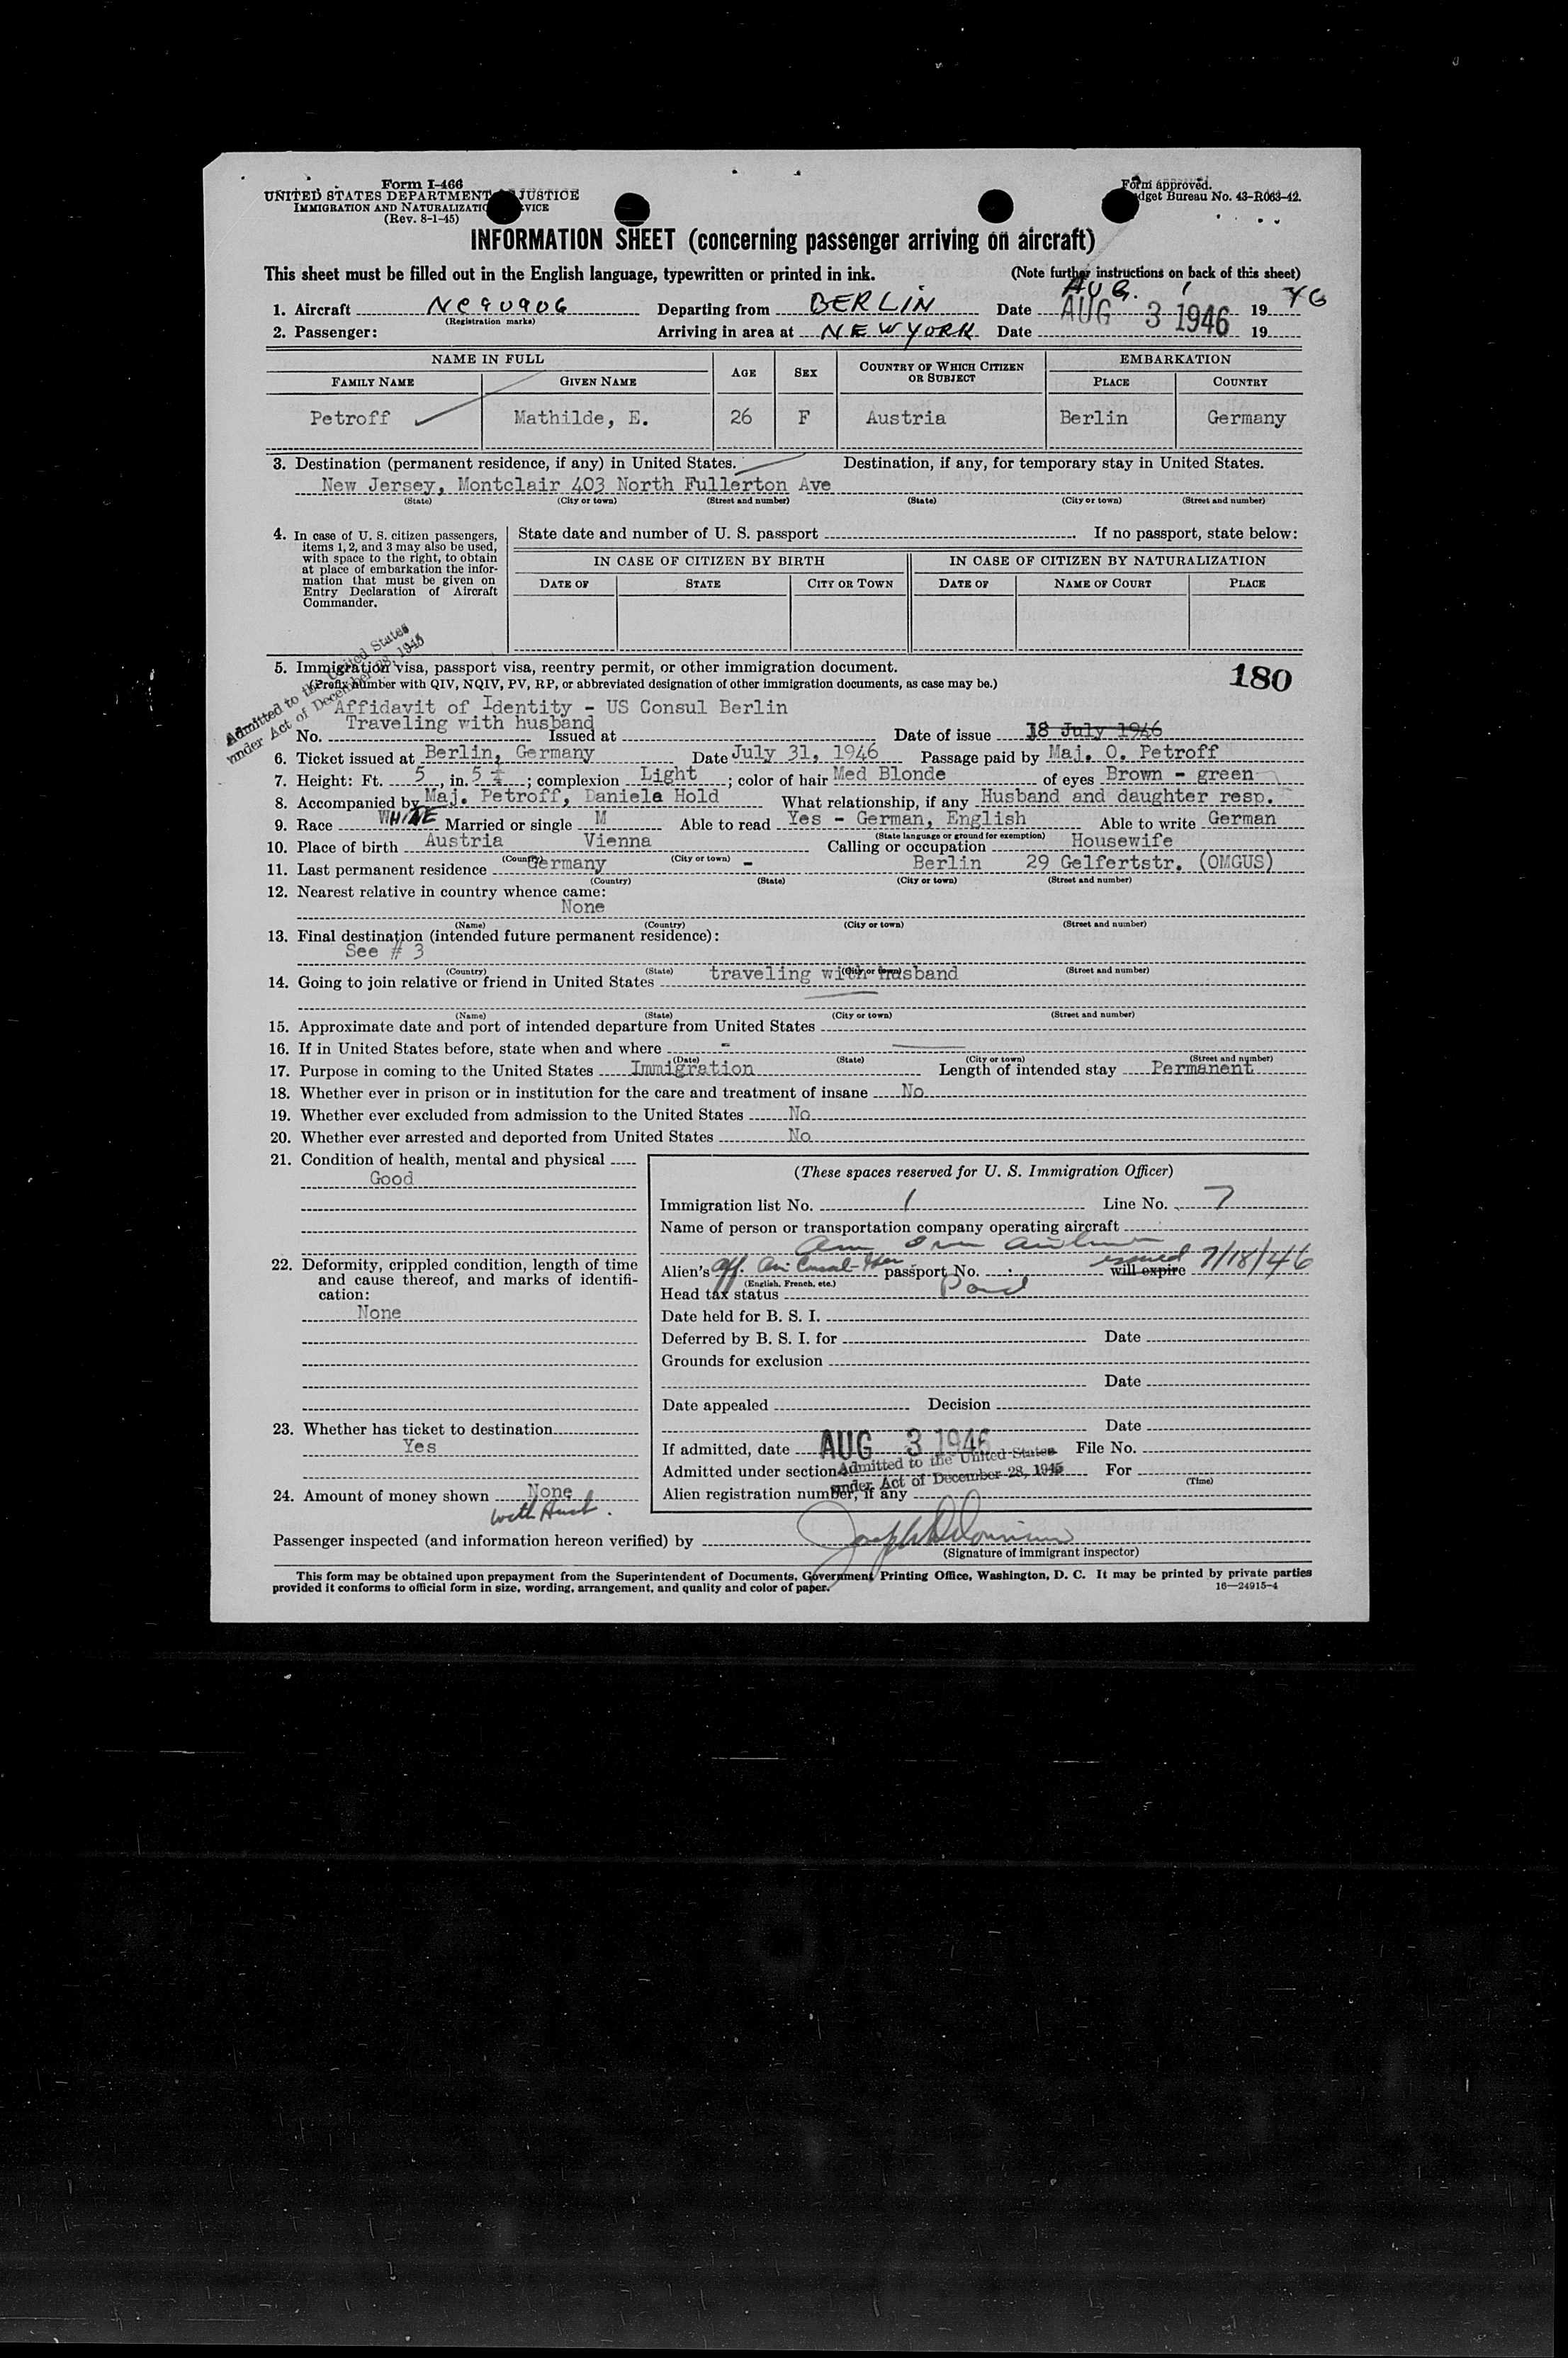 Form I-466
UNITED STATES DEPARTMENT JUSTICE
IMMIGRATION AND NATURALIZATIO VICE
(Rev. 8-1-45)
Form approved.
dget Bureau No. 43-R063-42.
INFORMATION SHEET (concerning passenger arriving on aircraft)
This sheet must be filled out in the English language, typewritten or printed in ink. (Note further instructions on back of this sheet)
1. Aircraft NC90906 Departing from BERLIN Date AUG. 1 1946
(Registration marks)
2. Passenger: Arriving in area at NEW YORK Date AUG 3 1946 19
NAME IN FULL AGE SEX COUNTRY OF WHICH CITIZEN OR SUBJECT EMBARKATION
FAMILY NAME GIVEN NAME PLACE COUNTRY
Petroff Mathilde, E. 26 F Austria Berlin Germany
3. Destination (permanent residence, if any) in United States. Destination, if any, for temporary stay in United States.
New Jersey, Montclair 403 North Fullerton Ave
(State) (City or town) (Street and number) (State) (City or town) (Street and number)
4. In case of U. S. citizen passengers,
items 1, 2, and 3 may also be used,
with space to the right, to obtain
at place of embarkation the infor-
mation that must be given on
Entry Declaration of Aircraft
Commander.
State date and number of U. S. passport . If no passport, state below:
IN CASE OF CITIZEN BY BIRTH IN CASE OF CITIZEN BY NATURALIZATION
DATE OF STATE CITY OR TOWN DATE OF NAME OF COURT PLACE
Admitted to the United States
under Act of December 28, 1945
5. Immigration visa, passport visa, reentry permit, or other immigration document.
(Prefix number with QIV, NQIV, PV, RP, or abbreviated designation of other immigration documents, as case may be.)
180
Affidavit of Identity - US Consul Berlin
Traveling with husband
No. Issued at Date of issue 18 July 1946
6. Ticket issued at Berlin, Germany Date July 31, 1946 Passage paid by Maj. O. Petroff
7. Height: Ft. 5, in. 5 ; complexion Light ; color of hair Med Blonde of eyes Brown - green
8. Accompanied by Maj. Petroff, Daniela Hold What relationship, if any Husband and daughter resp.
9. Race WHITE Married or single M Able to read Yes - German, English Able to write German
(State language or ground for exemption)
10. Place of birth Austria Vienna Calling or occupation Housewife
(Country) (City or town)
11. Last permanent residence Germany - Berlin 29 Gelfertstr. (OMGUS)
(Country) (State) (City or town) (Street and number)
12. Nearest relative in country whence came:
None
(Name) (Country) (City or town) (Street and number)
13. Final destination (intended future permanent residence):
See # 3
(Country) (State) (City or town) (Street and number)
14. Going to join relative or friend in United States traveling with husband
(Name) (State) (City or town) (Street and number)
15. Approximate date and port of intended departure from United States
16. If in United States before, state when and where -
(Date) (State) (City or town) (Street and number)
17. Purpose in coming to the United States Immigration Length of intended stay Permanent
18. Whether ever in prison or in institution for the care and treatment of insane No
19. Whether ever excluded from admission to the United States No
20. Whether ever arrested and deported from United States No
21. Condition of health, mental and physical
Good
22. Deformity, crippled condition, length of time
and cause thereof, and marks of identifi-
cation:
None
23. Whether has ticket to destination
Yes
24. Amount of money shown None
with Husb.
(These spaces reserved for U. S. Immigration Officer)
Immigration list No. 1 Line No. 7
Name of person or transportation company operating aircraft
Am Airlines
Alien's Aff. passport No. will expire issued 7/18/46
(English, French, etc.)
Head tax status
Date held for B. S. I.
Deferred by B. S. I. for Date
Grounds for exclusion
Date
Date appealed Decision
Date
If admitted, date AUG 3 1946 File No.
Admitted under section Admitted to the United States For
(Time)
under Act of December 28, 1945
Alien registration number, if any
Passenger inspected (and information hereon verified) by
(Signature of immigrant inspector)
This form may be obtained upon prepayment from the Superintendent of Documents, Government Printing Office, Washington, D. C. It may be printed by private parties
provided it conforms to official form in size, wording, arrangement, and quality and color of paper.
16—24915-4